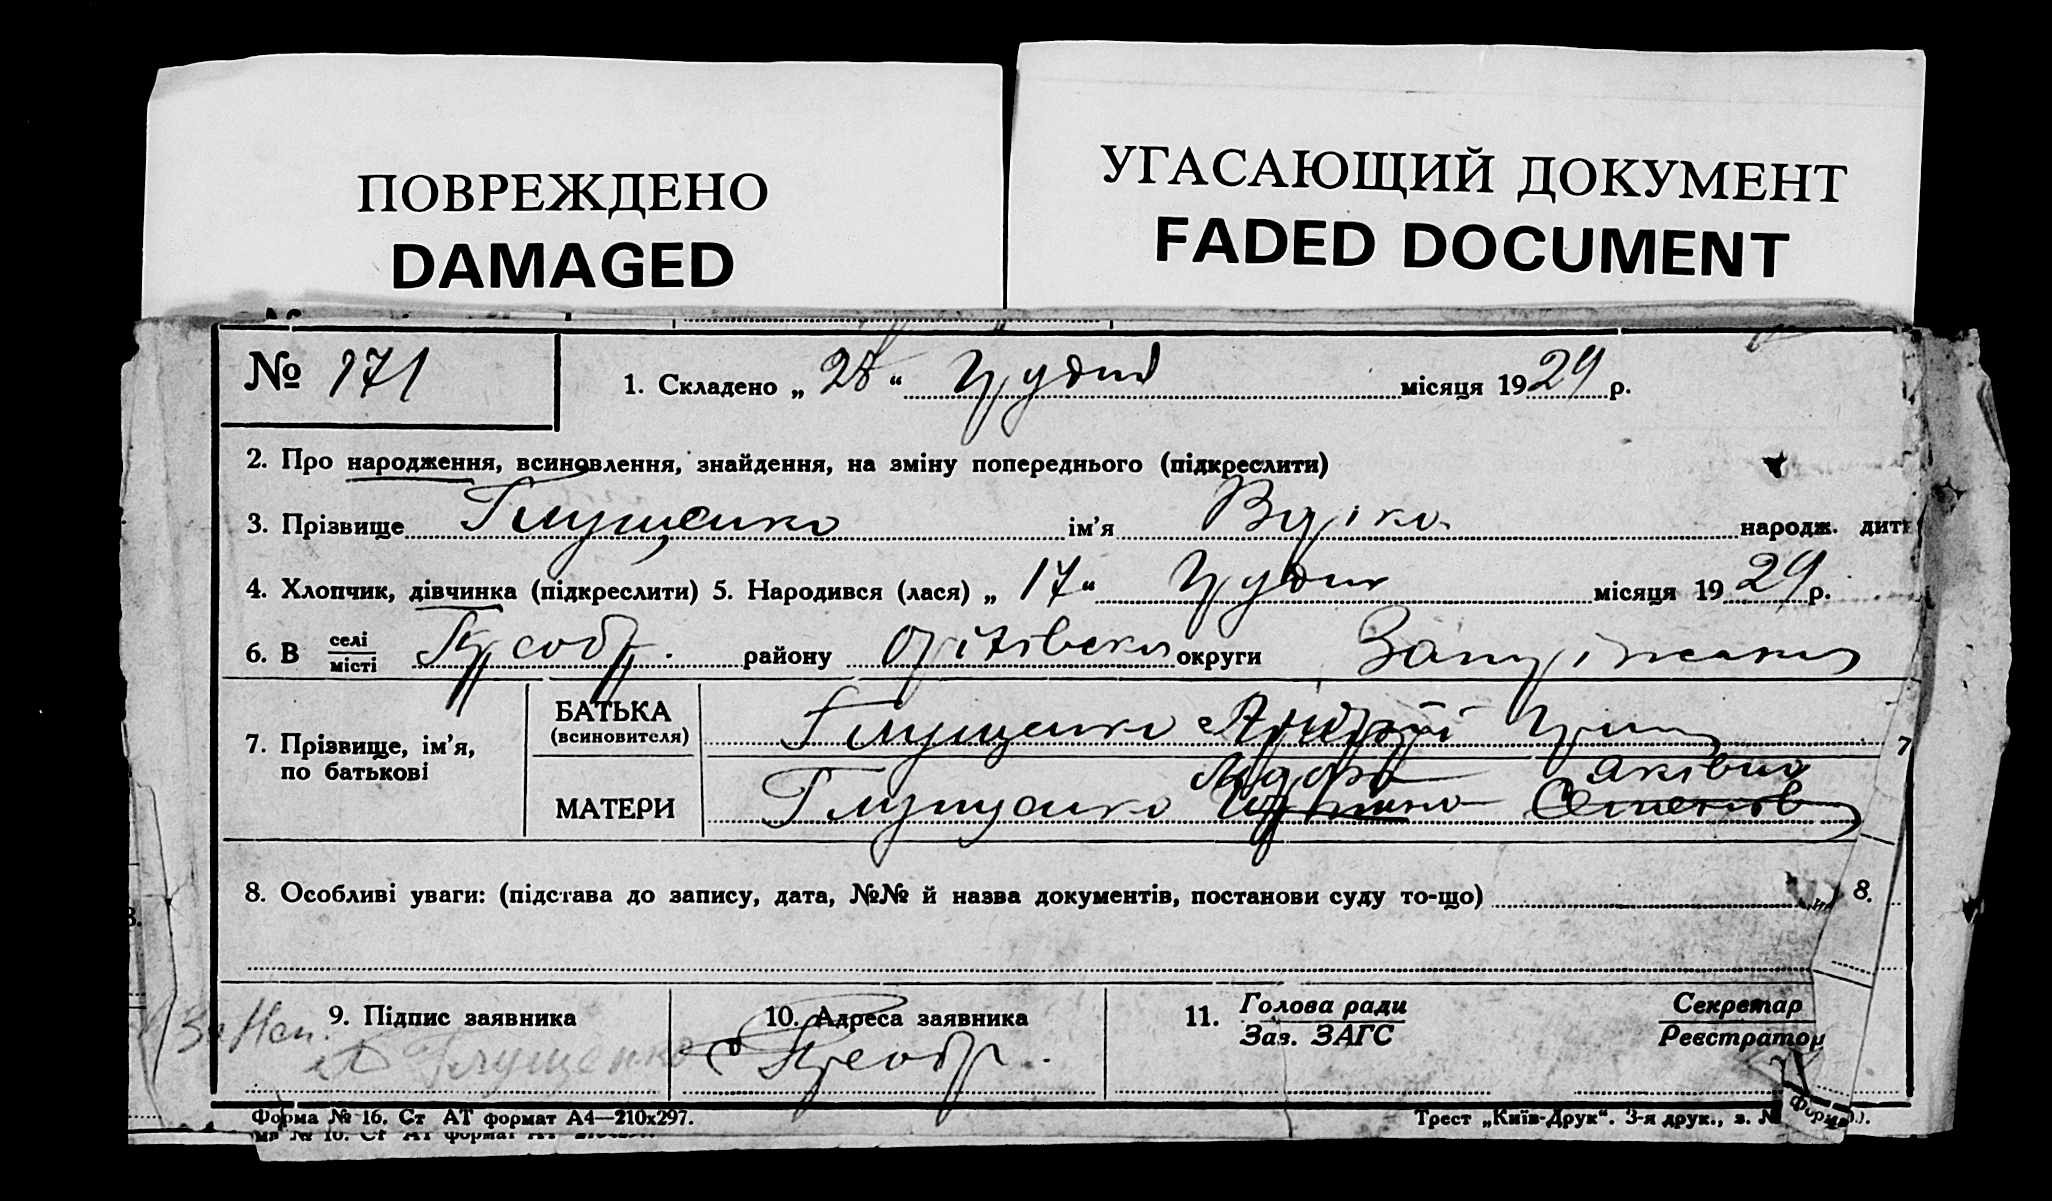 ПОВРЕЖДЕНО
DAMAGED
УГАСАЮЩИЙ ДОКУМЕНТ
FADED DOCUMENT
№ 171
1. Складено „ 28 “ Грудня місяця 1929 р.
2. Про народження, всиновлення, знайдення, на зміну попереднього (підкреслити)
3. Прізвище Глущенко ім’я народж. дит
4. Хлопчик, дівчинка (підкреслити) 5. Народився (лася) „ 17 “ Грудня місяця 1929 р.
6. В селі місті району Оріхівськ округи Запоріжськ
7. Прізвище, ім’я, по батькові
БАТЬКА (всиновителя) Глущенко Андрій Гриц
Яківна
МАТЕРИ Глущенко
7
8. Особливі уваги: (підстава до запису, дата, №№ й назва документів, постанови суду то-що)
8.
9. Підпис заявника
10. Адреса заявника
11. Голова ради Зав. ЗАГС
Секретар Реєстратор
За Неп. Глущенко
Форма № 16. Ст АТ формат А4—210х297.
Трест „Київ-Друк“. 3-я друк., з. №
Форма